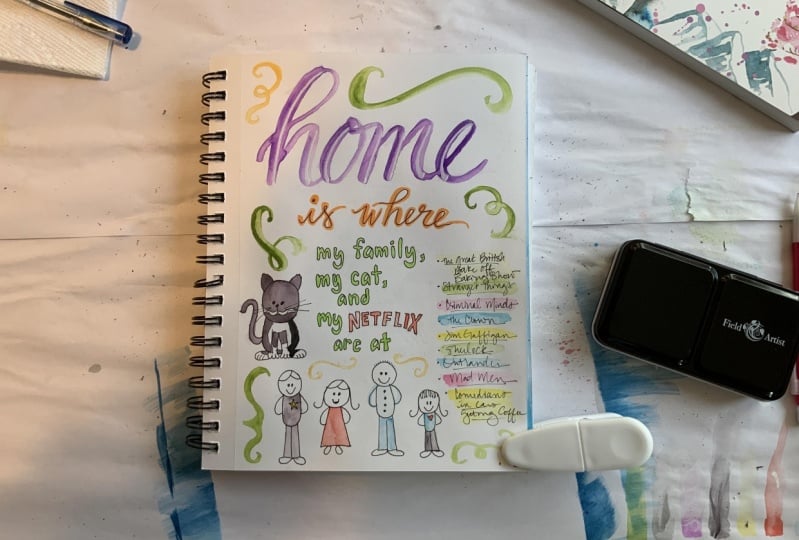 home
is where
my family,
my cat,
and
my NETFLIX
are at
• The Great British
Bake off
Baking Show
• Stranger Things
• Criminal Minds
• The Crown
• Jim Gaffigan
• Sherlock
• Outlander
• Mad Men
• Comedians
in cars
Getting Coffee
Field & Artist